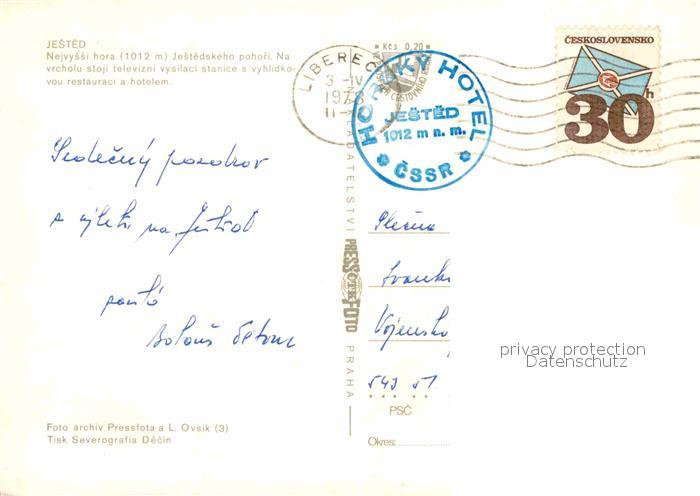 JEŠTĚD
Nejvyšší hora (1012 m) Ještědského pohoří. Na
vrcholu stojí televizní vysílací stanice s vyhlídko-
vou restaurací a hotelem.
Srdečný pozdrav
z výletu na Ještěd
posílá
Foto archiv Pressfota a L. Ovsík (3)
Tisk Severografia Děčín
Kčs 0,20
LIBEREC
3 -IV
1978
11
HORSKÝ HOTEL
JEŠTĚD
1012 m n. m.
ČSSR
ČESKOSLOVENSKO
30h
VYDAVATELSTVÍ
PRESSFOTO
PRAHA
Slečna
Ivanka
Vojensk
543 51
PSČ
Okres:
privacy protection
Datenschutz